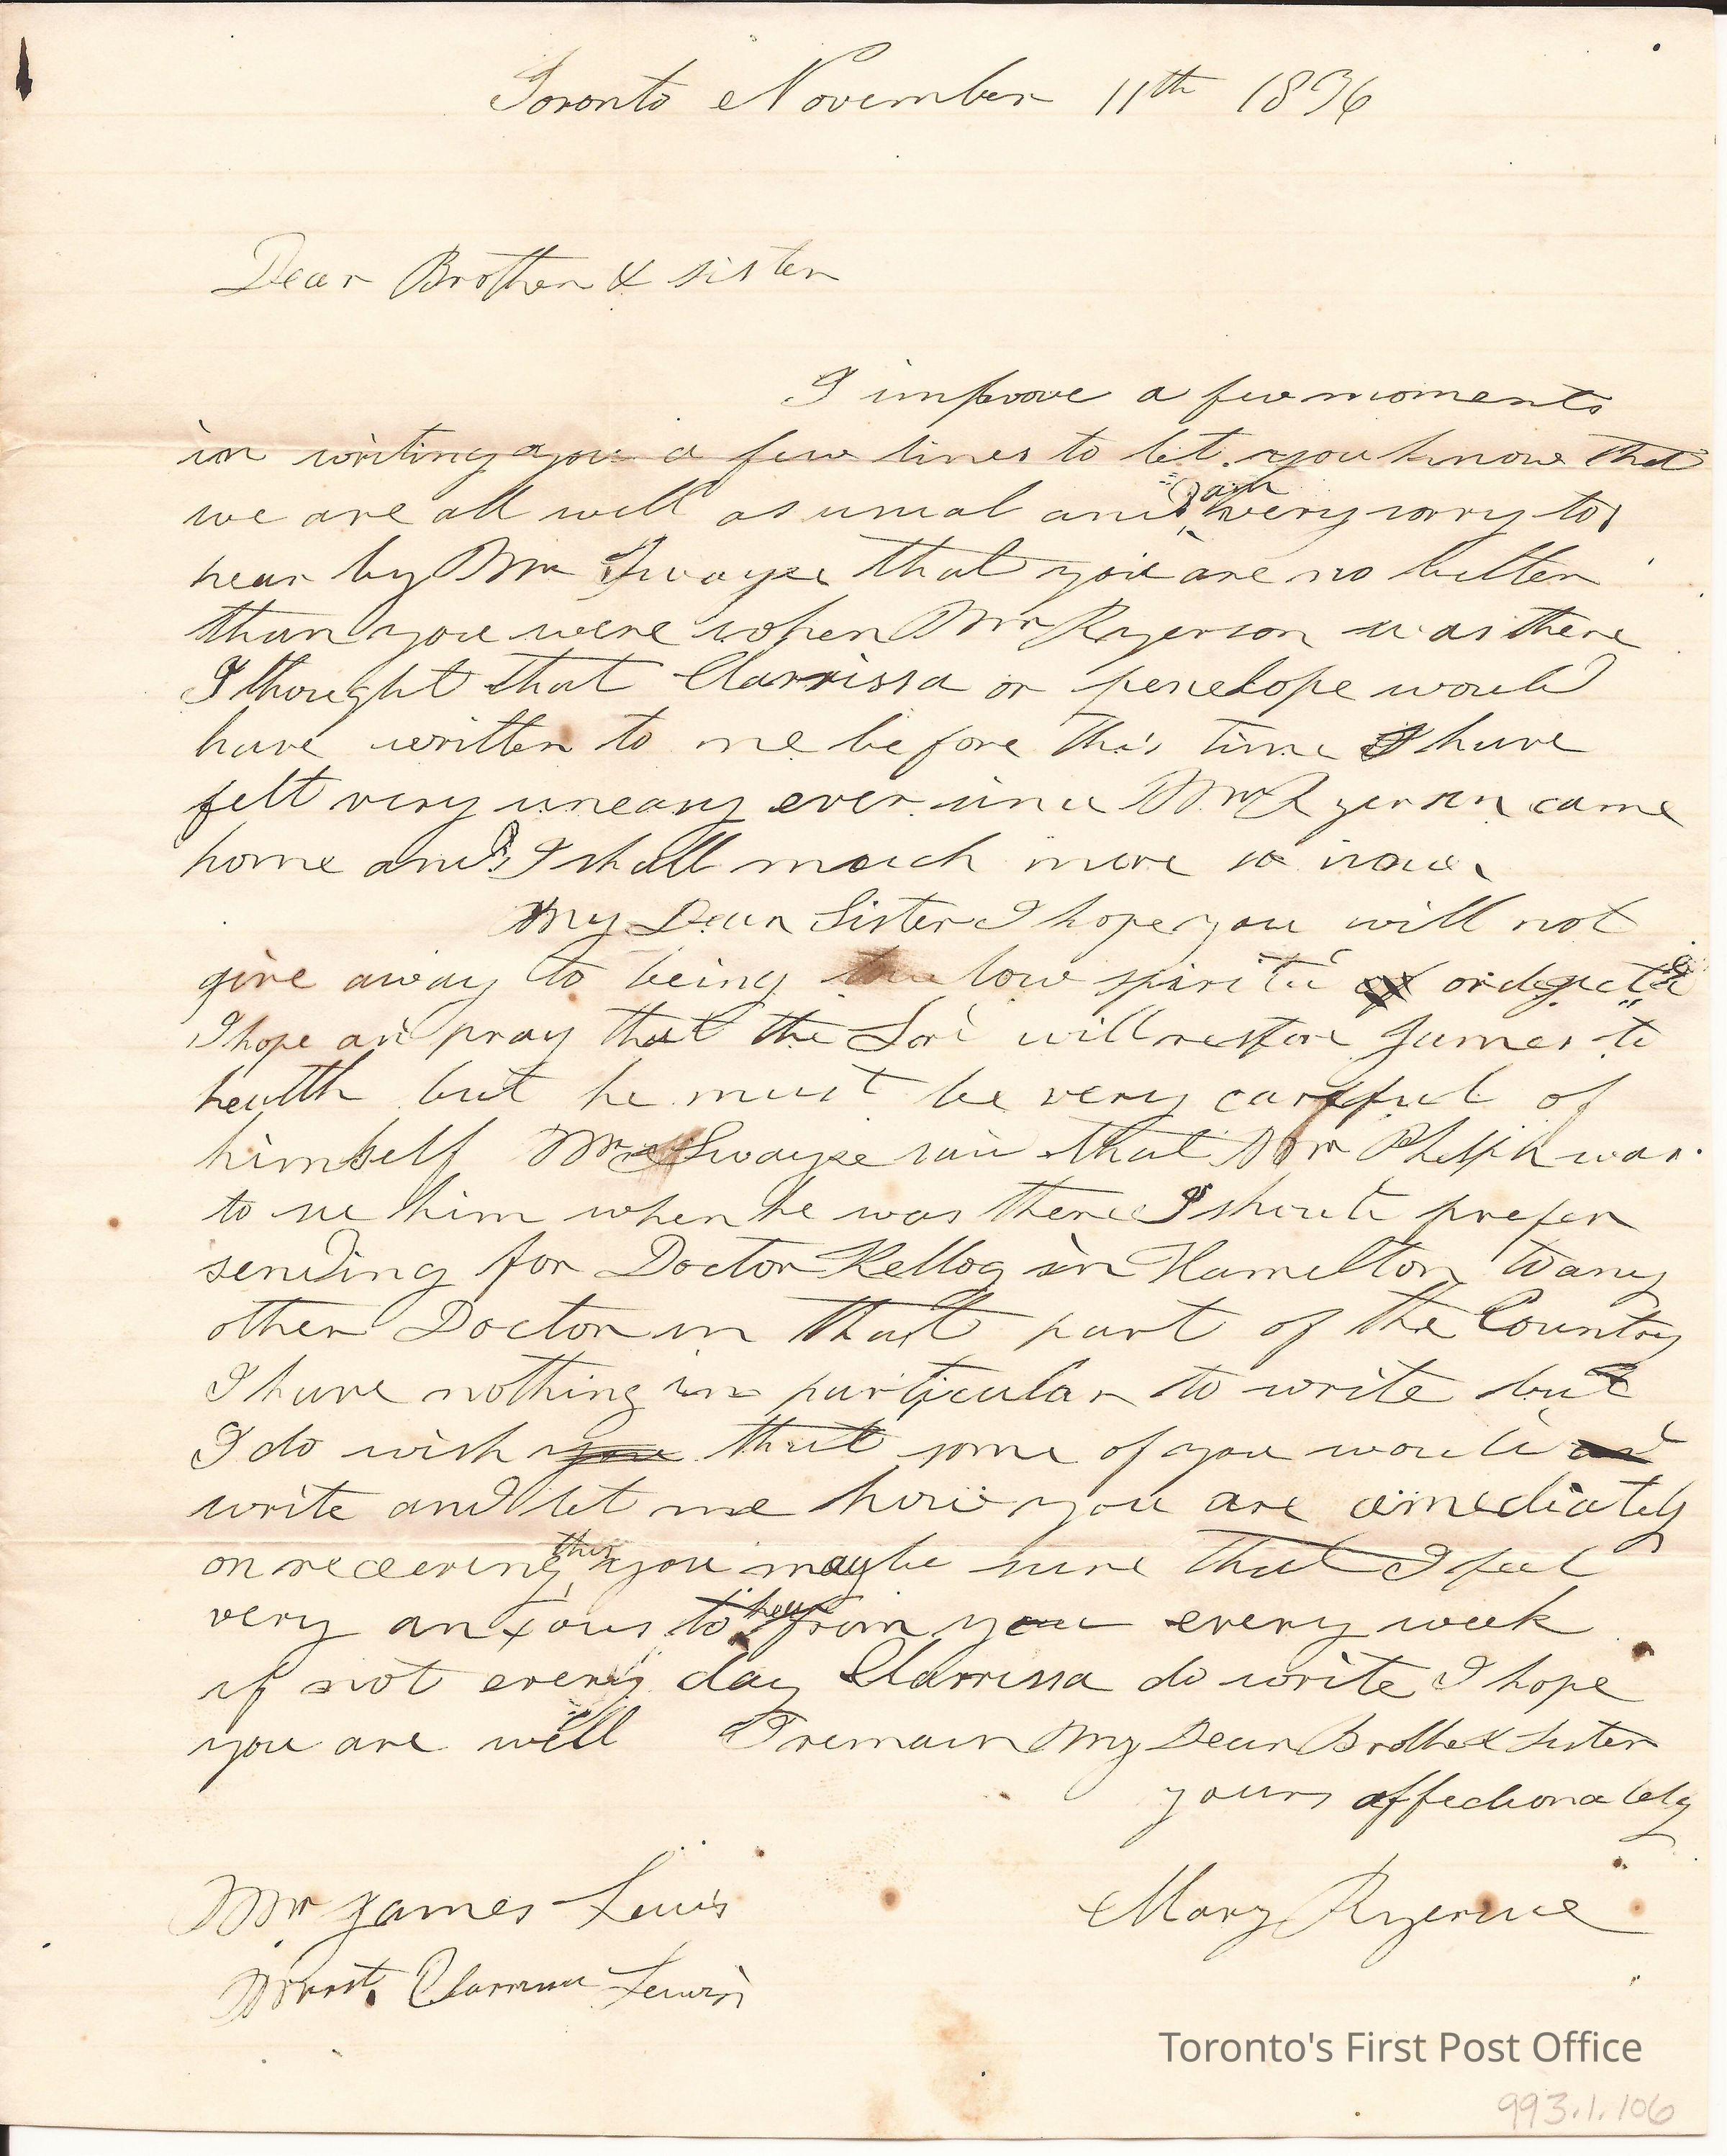 Toronto November 11th 1836
Dear Brother & sister
I improve a few moments
in writing you a few lines to let you know that
we are all well as usual and I am very sorry to
hear by Mr Swayze that you are no better
than you were when Mr Ryerson was there
I thought that Clarrissa or penelope would
have written to me before this time I have
felt very uneasy ever since Mr Ryerson came
home and I shall much more so now
My Dear Sister I hope you will not
give away to being low spirited or
I hope and pray that the Lord will restore James to
health but he must be very careful of
himself Mr Swayze said that was
to see him when he was there I should prefer
sending for Doctor Kellog in Hamelton to any
other Doctor in that part of the Country
I have nothing in particular to write but
I do wish you that some of you would
write and let me how you are amediately
on receeving this you may be sure that I feel
very anxous to hear from you every week
if not every day Clarrissa do write I hope
you are well I remain My Dear Brother & Sister
yours affectionately
Mr James Lewis
Mary
Clarrissa Lewis
Toronto's First Post Office
993.1.106